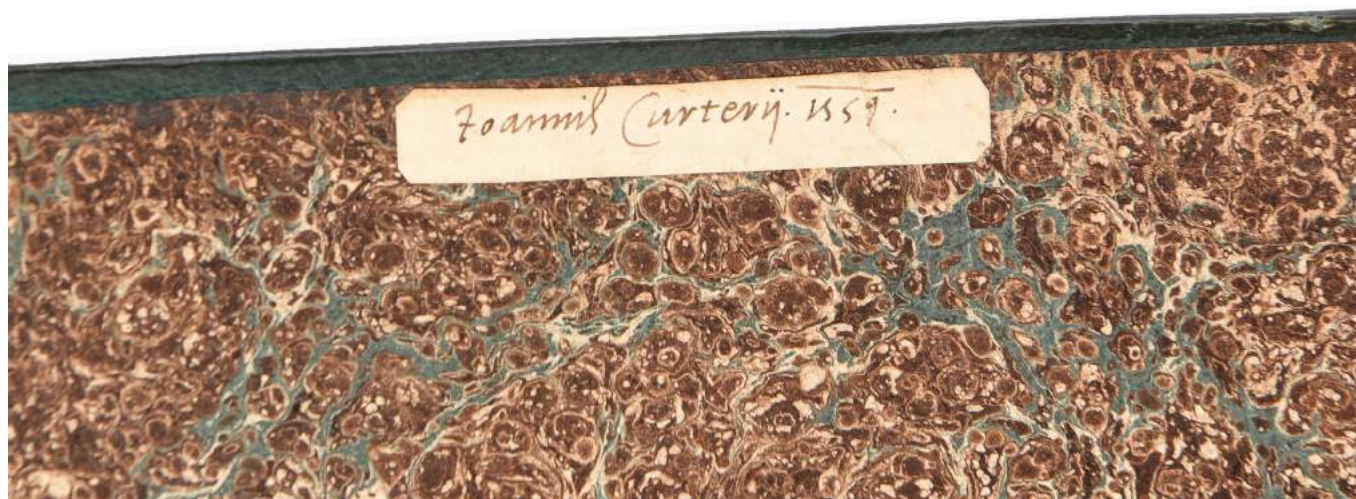 Joannis Curterij. 1559.